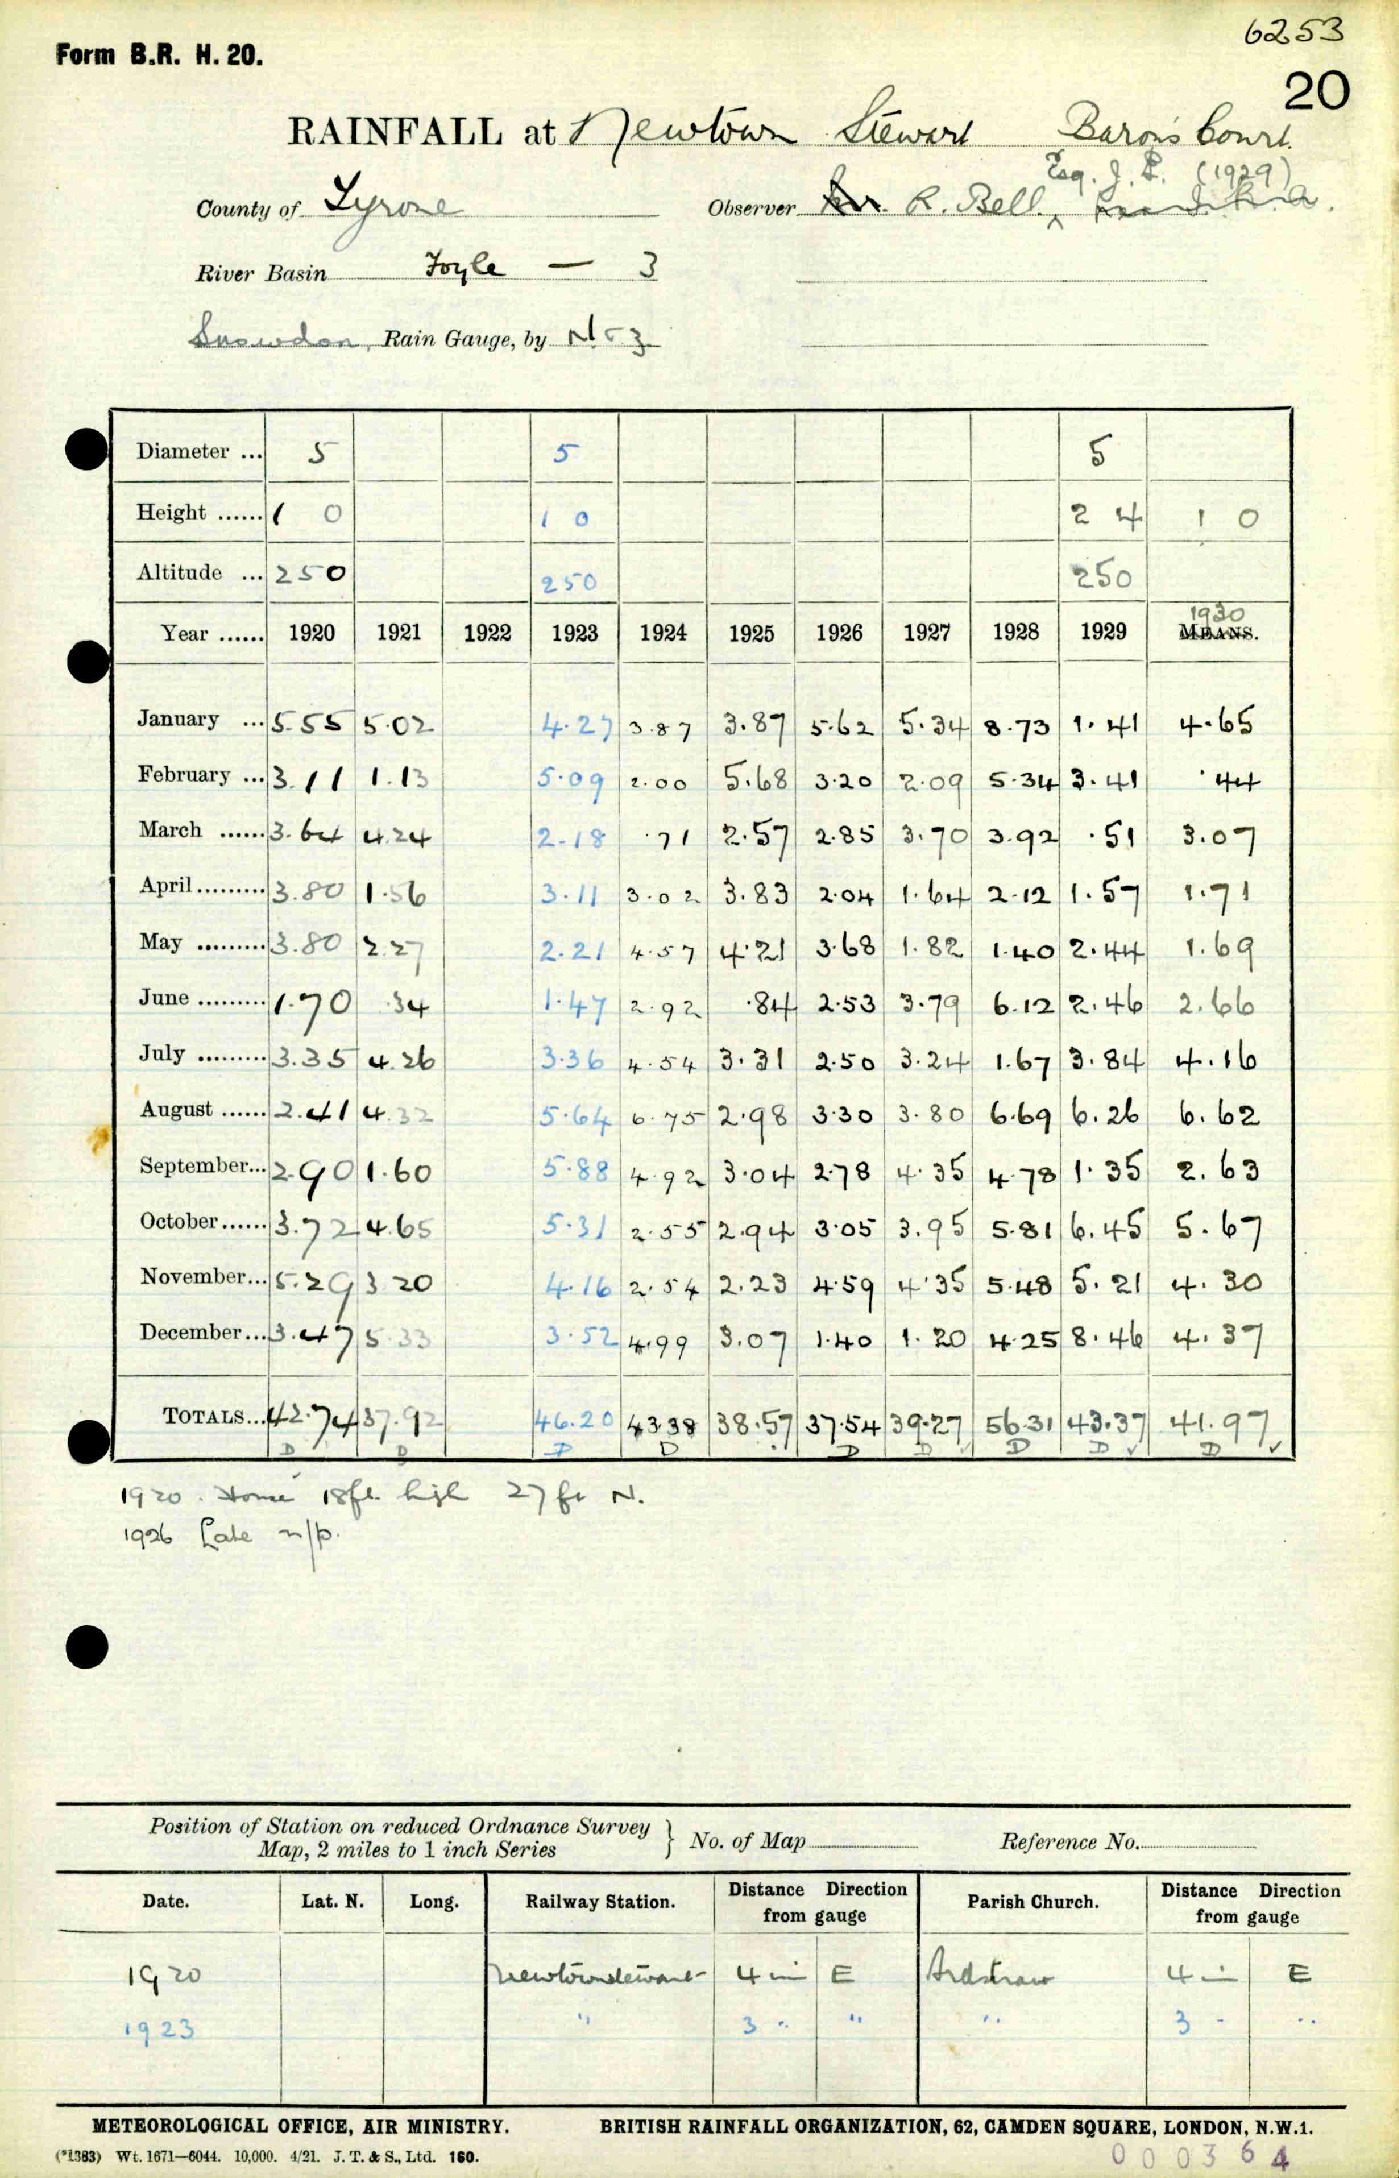 6253
Form B.R. H. 20.
20
RAINFALL at Newtown Stewart Barons Court.
Esq. J. P. (1929)
County of Tyrone Observer R. Bell,
River Basin Foyle — 3
Snowdon, Rain Gauge, by N & Z
Diameter ... 5 5 5
Height ...... 1 0 1 0 2 4 1 0
Altitude ... 250 250 250
1930
Year ...... 1920 1921 1922 1923 1924 1925 1926 1927 1928 1929 MEANS.
January ... 5.55 5.02 4.27 3.87 3.87 5.62 5.34 8.73 1.41 4.65
February ... 3.11 1.13 5.09 2.00 5.68 3.20 2.09 5.34 3.41 .44
March ...... 3.64 4.24 2.18 .71 2.57 2.85 3.70 3.92 .51 3.07
April ......... 3.80 1.56 3.11 3.02 3.83 2.04 1.64 2.12 1.57 1.71
May ......... 3.80 2.27 2.21 4.57 4.21 3.68 1.82 1.40 2.44 1.69
June ......... 1.70 .34 1.47 2.92 .84 2.53 3.79 6.12 2.46 2.66
July ......... 3.35 4.26 3.36 4.54 3.31 2.50 3.24 1.67 3.84 4.16
August ...... 2.41 4.32 5.64 6.75 2.98 3.30 3.80 6.69 6.26 6.62
September... 2.90 1.60 5.88 4.92 3.04 2.78 4.35 4.78 1.35 2.63
October...... 3.72 4.65 5.31 2.55 2.94 3.05 3.95 5.81 6.45 5.67
November... 5.29 3.20 4.16 2.54 2.23 4.59 4.35 5.48 5.21 4.30
December... 3.47 5.33 3.52 4.99 3.07 1.40 1.20 4.25 8.46 4.37
TOTALS... 42.74 37.92 46.20 43.38 38.57 37.54 39.27 56.31 43.37 41.97
D D D D D D ✓ D D ✓ D ✓
1920 Home 18ft. high 27 ft N.
1926 Late n/p.
Position of Station on reduced Ordnance Survey
Map, 2 miles to 1 inch Series } No. of Map Reference No.
Date. Lat. N. Long. Railway Station. Distance Direction from gauge Parish Church. Distance Direction from gauge
1920 Newtownstewart 4 mi E Ardstraw 4 mi E
1923 " 3 " " " 3 " "
METEOROLOGICAL OFFICE, AIR MINISTRY. BRITISH RAINFALL ORGANIZATION, 62, CAMDEN SQUARE, LONDON, N.W.1.
(*1383) Wt. 1671—6044. 10,000. 4/21. J. T. & S., Ltd. 160.
000364